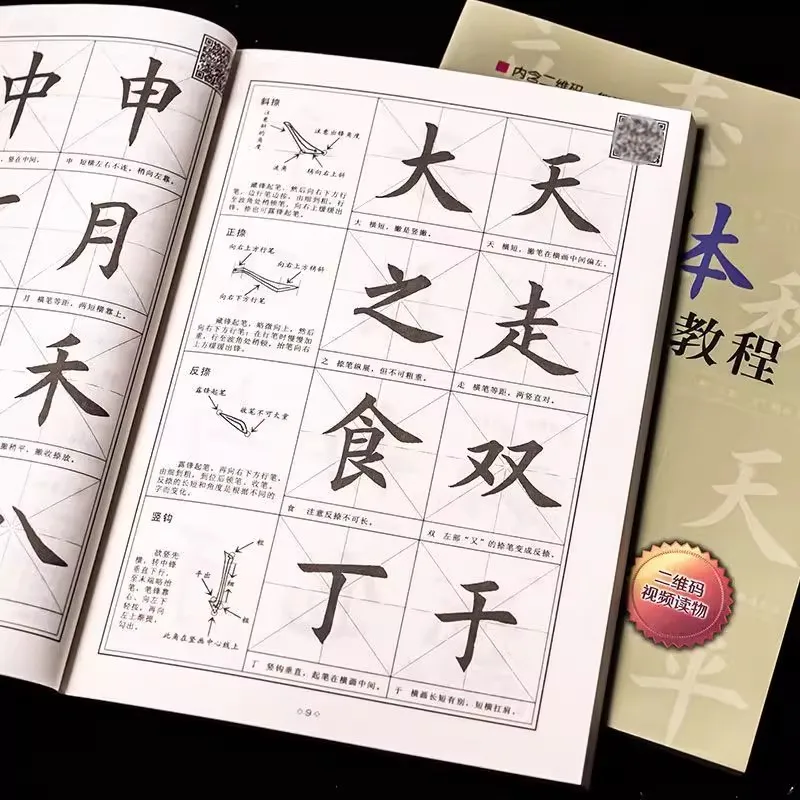 中
申
竖在中间。
申 短横左右不连，稍向左靠。
月
月 横笔等距，两短横靠上。
禾
撇稍平，撇收捺放。
八
斜捺
注意斜的角度
注意出锋角度
捺角
转向右上斜
藏锋起笔，然后向右下方行
笔，边行笔边按，由细到粗，行
至波角处稍顿笔，向右上缓缓出
锋，捺也可露锋起笔。
大
大 横短，撇是竖撇。
天
天 横短，撇笔在横画中间偏左。
正捺
向右上方行笔
向右上方倾斜
向右下方行笔
藏锋起笔，略微向上，然后
向右下方行笔；在行笔时慢慢加
重，行至波角处稍驻，抬笔向右
上方缓缓出锋。
之
之 捺笔纵展，但不可粗重。
走
走 横笔等距，两竖直对。
反捺
露锋起笔
收笔不可太重
露锋起笔，再向右下方行笔，
由细到粗，到位后顿笔、收笔。
反捺的长短和角度是根据不同的
字而变化。
食
食 注意反捺不可长。
双
双 左部“又”的捺笔变成反捺。
竖钩
欲竖先
横，转中锋
垂直下行，
至末端略抬
笔，笔锋靠
右、向左下
轻按，再向
左上踢提，
勾出。
粗
细
粗
平出
此角在竖画中心线上
丁
丁 竖钩垂直，起笔在横画中间。
于
于 横画长短有别，短横扛肩。
9
内含二维码
体
教程
天
平
二维码
视频读物